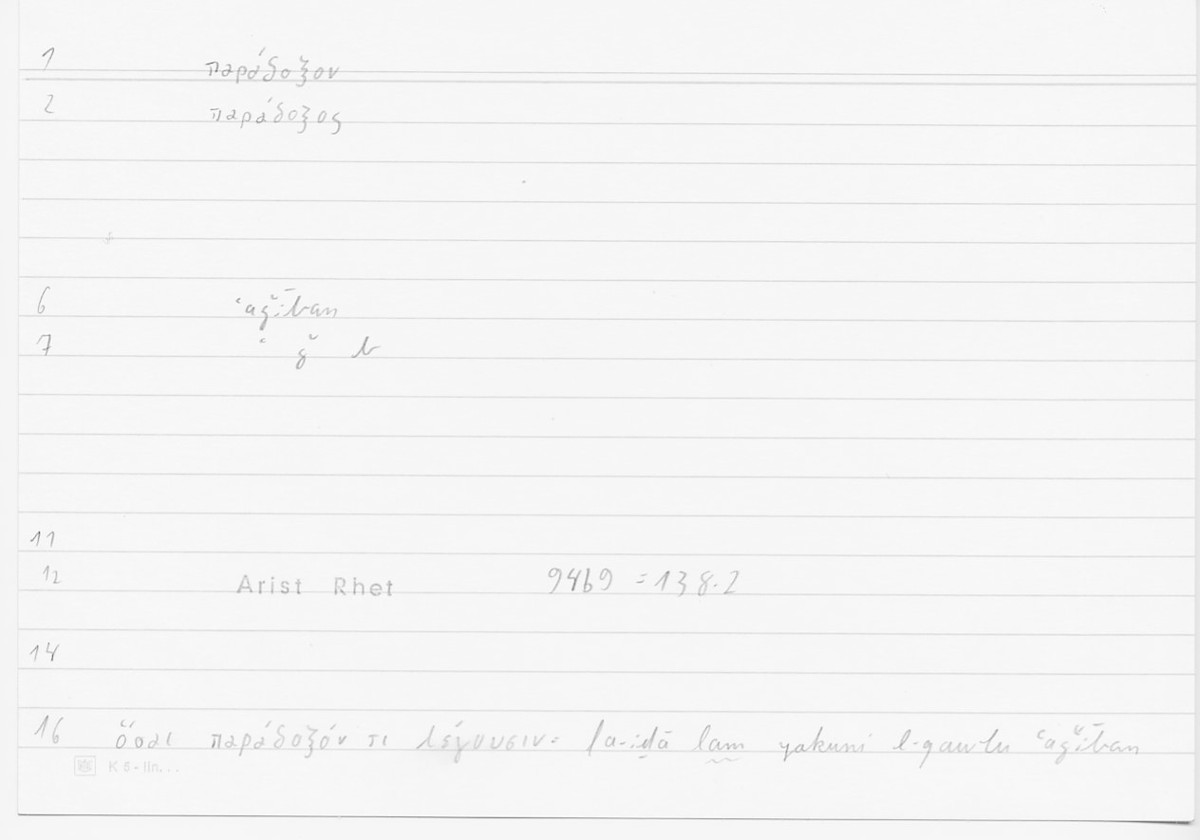 1 παράδοξον
2 παράδοξος
6 ʿaǧīban
7 ʿ ǧ b
11
12 Arist Rhet 94b9 = 138.2
14
16 ὅσαι παράδοξόν τι λέγουσιν: fa-iḏā lam yakuni l-qawlu ʿaǧīban
K 5 -